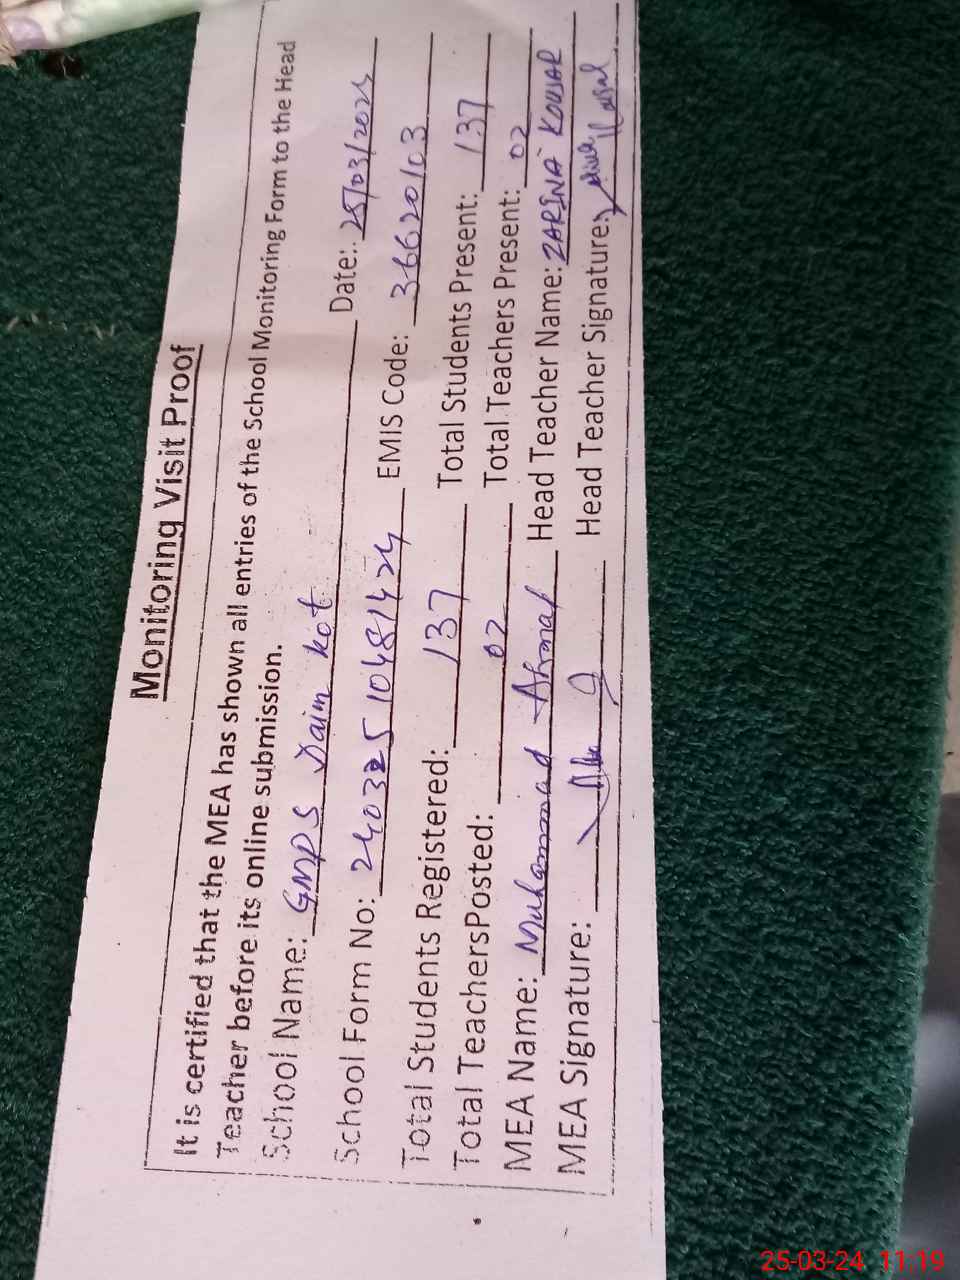 Monitoring Visit Proof
It is certified that the MEA has shown all entries of the School Monitoring Form to the Head
Teacher before its online submission.
School Name: GMPS Daim Kot Date: 25/03/2024
School Form No: 24032510481424 EMIS Code: 36620103
Total Students Registered: 137 Total Students Present: 137
Total TeachersPosted: 02 Total Teachers Present: 02
MEA Name: Muhammad Akmal Head Teacher Name: ZARINA KOUSAR
MEA Signature: Head Teacher Signature: Kousar
25-03-24 11:19